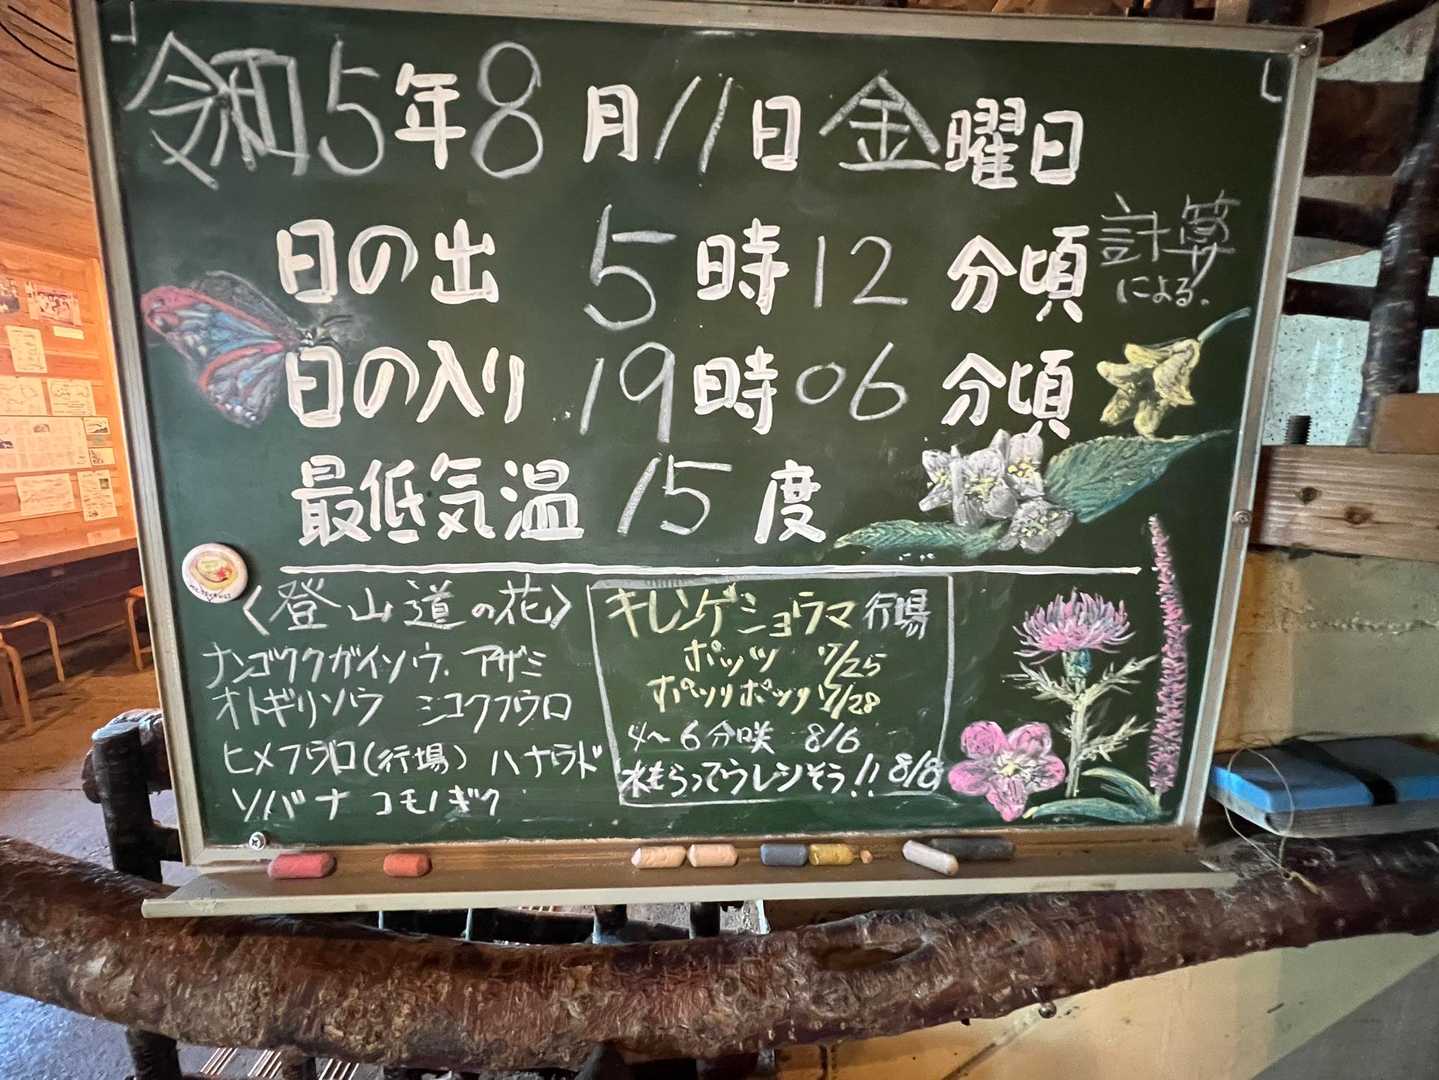 令和5年8月11日金曜日
日の出 5時12分頃 計算による.
日の入り 19時06分頃
最低気温 15度
〈登山道の花〉
ナンゴククガイソウ. アザミ
オトギリソウ シコクフウロ
ヒメフウロ(行場) ハナウド
ソバナ コモノギク
キレンゲショウマ 行場
ポッツ 7/25
ポッツリポッツリ 7/28
4〜6分咲 8/6
水もらってウレシそう!! 8/8